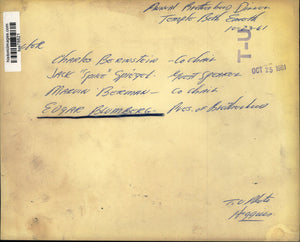 Annual Brotherhood Dinner
Temple Beth Emeth
T-U
OCT 25 1961
CHARLES BERINSTEIN - CO CHAIR
JACK "SPIKE" SPIEGEL - GUEST SPEAKER
MARVIN BERMAN - CO CHAIR
EDGAR BLUMBERG - PRES. OF Brotherhood
T.U Photo
Higgins